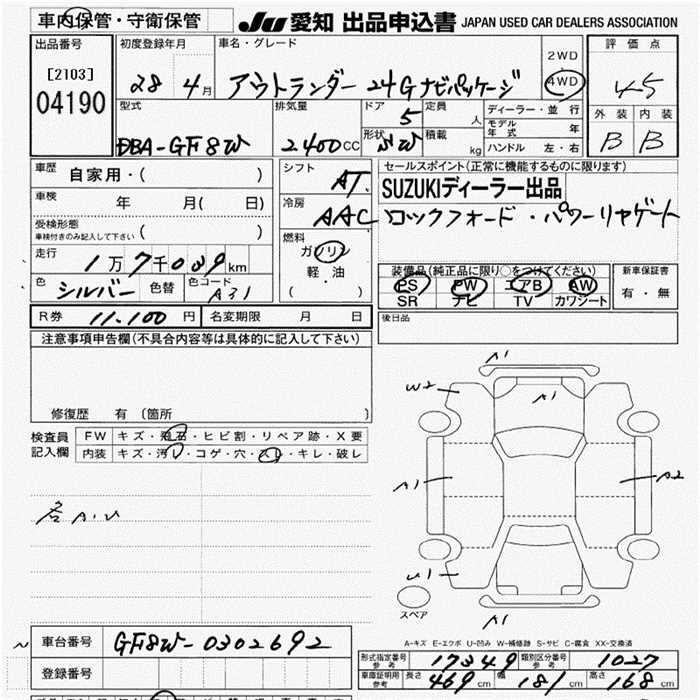 車内保管・守衛保管
JU 愛知 出品申込書 JAPAN USED CAR DEALERS ASSOCIATION
出品番号 初度登録年月 車名・グレード 2WD 評価点
[2103] 28 4月 アウトランダー 24G ナビパッケージ 4WD 4.5
04190
型式 排気量 ドア 5 定員 人 ディーラー・並行 外装 内装
DBA-GF8W 2400CC 形状 SW 積載 kg モデル年式 年 B B
ハンドル 左・右
車歴 自家用・( ) シフト AT. セールスポイント(正常に機能するものに限ります)
SUZUKIディーラー出品
車検 年 月( 日) 冷房 AAC ロックフォード・パワーリヤゲート
受検形態
車検付きのみ記入して下さい ( ) 燃料 ガソリン
走行 1万7千009km 軽油
( ・ ) 装備品(純正品に限り○をつけてください) 新車保証書
色 シルバー 色替 色コード A31 PS PW エアB AW 有・無
SR ナビ TV カワシート
R券 11.100円 名変期限 月 日 後日品
注意事項申告欄(不具合内容等は具体的に記入して下さい)
A1
W2 A1
修復歴 有 〔箇所 〕
検査員 FW キズ・飛石・ヒビ割・リペア跡・X要
記入欄 内装 キズ・汚レ・コゲ・穴・スレ・キレ・破レ
A1 A2
各A.U
U1
スペア A1
A-キズ E-エクボ U-凹み W-補修跡 S-サビ C-腐食 XX-交換済
車台番号 GF8W-0302692
型式指定番号 参考 17349 類別区分番号 参考 1027
登録番号 車庫証明用 参考 長さ 469cm 幅 181cm 高さ 168cm